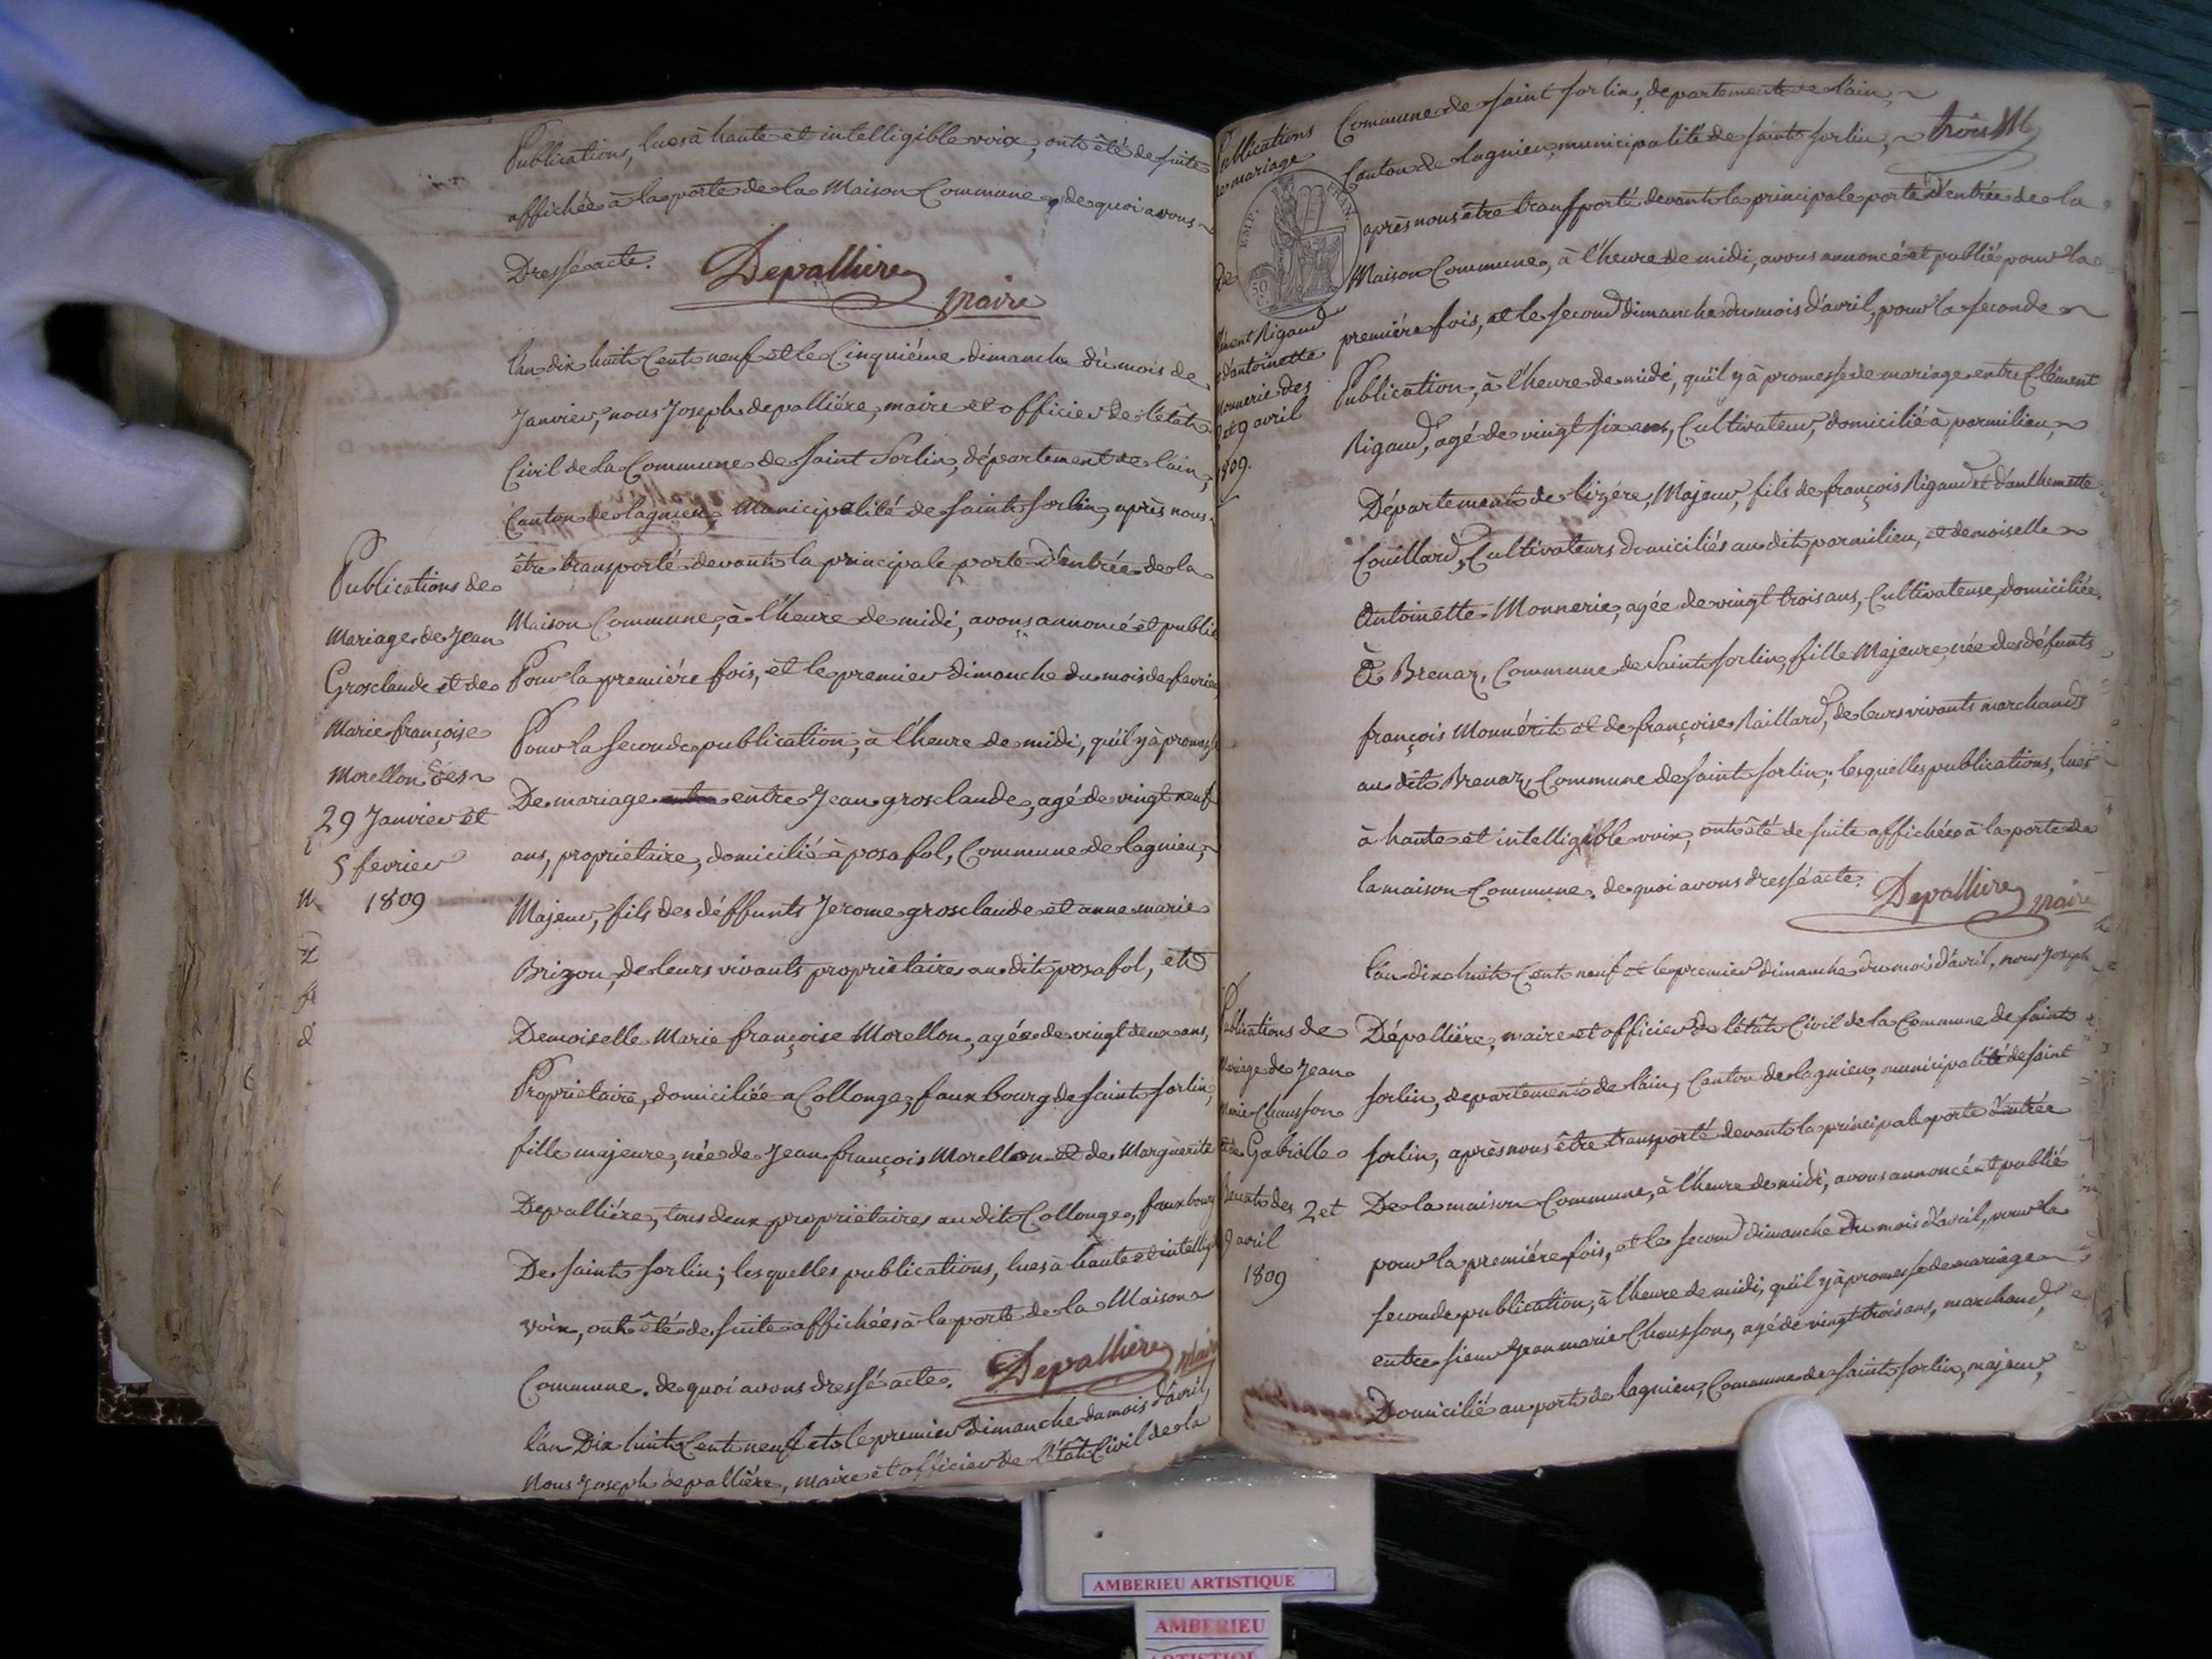 Publications, lues à haute et intelligible voix, ont été de suite
affichées à la porte de la Maison Commune, de quoi avons
Dressé acte.
Depalliere
maire
Publications de
Mariage de Jean
Grosclaude et de
Marie françoise
Morellon des
29 Janvier et
5 fevrier
1809
l'an dix huit Cent neuf et le Cinquiéme dimanche du mois de
Janvier, nous Joseph depalliére, maire et officier de l'état
Civil de la Commune de Saint Sorlin, département de l'ain,
Canton de lagnieu, Municipalité de saint sorlin, après nous
être transporté devant la principale porte d'entrée de la
Maison Commune, à l'heure de midi, avons annoncé et publié
Pour la premiére fois, et le premier dimanche du mois de fevrier
Pour la seconde publication, à l'heure de midi, qu'il y à promesse
De mariage entre Jean grosclaude, agé de vingt neuf
ans, propriétaire, domicilié à posafol, Commune de lagnieu,
Majeur, fils des déffunts Jerome grosclaude et anne marie
Brizon, de leurs vivants propriétaires au dit posafol, et
Demoiselle Marie françoise Morellon, agée de vingt deux ans,
Propriétaire, domiciliée a Collonge, faux bourg de saint sorlin,
fille majeure, née de Jean françois Morellon et de Marguerite
Depalliére, tous deux propriétaires au dit Collonge, fauxbourg
De saint sorlin; lesquelles publications, lues à haute et intellig
voix, ont été de suite affichées à la porte de la Maison
Commune. de quoi avons dressé acte.
Depalliere
maire
l'an Dix huit Cent neuf et le premier Dimanche du mois d'avril,
Nous Joseph depalliére, maire et officier de l'état Civil de la
Publications
de mariage
De
lément Rigaud
d'antoinette
Monnerie des
2 et 9 avril
1809.
EMP. FRAN.
50
trois
Commune de saint sorlin, departement de l'ain,
Canton de lagnieu, municipalité de saint sorlin,
après nous être transporté devant la principale porte d'entrée de la
Maison Commune, à l'heure de midi, avons annoncé et publié pour la
premiére fois, et le second dimanche du mois d'avril, pour la seconde
Publication, à l'heure de midi, qu'il y à promesse de mariage entre Clément
Rigaud, agé de vingt six ans, Cultivateur, domicilié à parmilieu,
Département de l'izére, Majeur, fils de françois Rigaud et d'anthemette
Couillard, Cultivateurs domiciliés au dit parmilieu, et demoiselle
Antoinette Monnerie, agée de vingt trois ans, Cultivateuse, domiciliée
à Brenaz, Commune de Saint sorlin, fille Majeure, née des défunts
françois Monnérit et de françoise Raillard, de leurs vivants marchands
au dit Brenaz, Commune de saint sorlin; lesquelles publications, lues
à haute et intelligible voix, ont été de suite affichées à la porte de
la maison Commune. de quoi avons dressé acte.
Depalliere
maire
Publications de
Mariage de Jean
Marie Chausson
et de Gabrielle
des 2 et
9 avril
1809
l'an dix huit Cent neuf et le premier dimanche du mois d'avril, nous Joseph
Dépalliére, maire et officier de l'état Civil de la Commune de saint
sorlin, departement de l'ain, Canton de lagnieu, municipalité de saint
sorlin, après nous être transporté devant la principale porte d'entrée
De la maison Commune, à l'heure de midi, avons annoncé et publié
pour la premiére fois, et le second dimanche du mois d'avril, pour la
seconde publication, à l'heure de midi, qu'il y à promesse de mariage
entre sieur Jean marie Chausson, agé de vingt trois ans, marchand,
Domicilié au port de lagnieu, Commune de saint sorlin, majeur,
AMBERIEU ARTISTIQUE
AMBERIEU
ARTISTIQUE